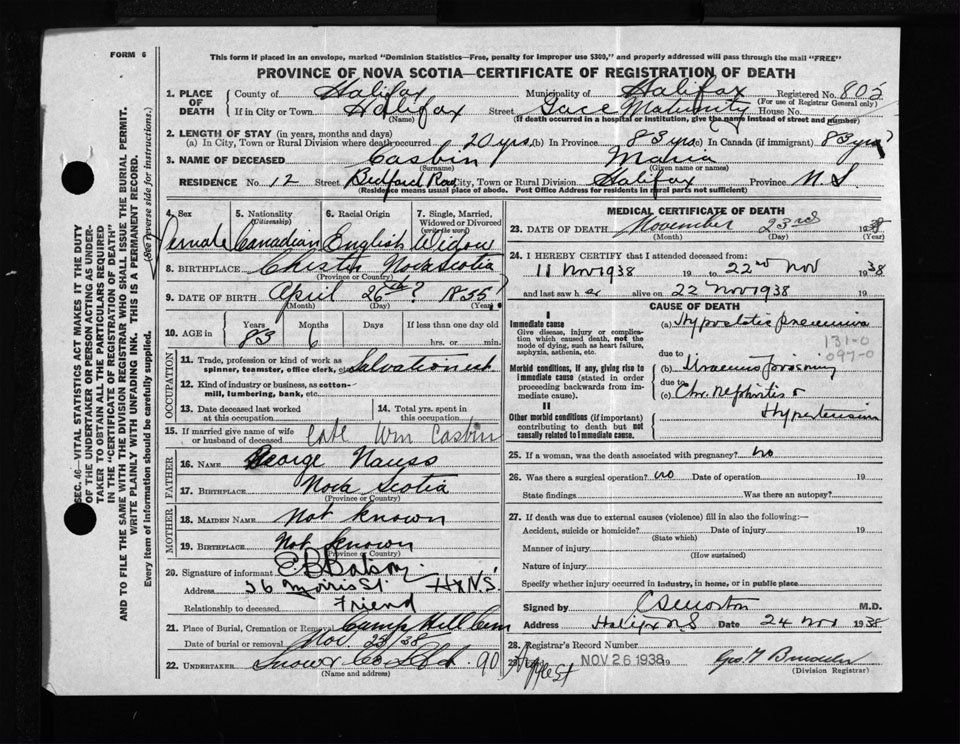 FORM 6
This form if placed in an envelope, marked "Dominion Statistics—Free, penalty for improper use $300," and properly addressed will pass through the mail "FREE"
PROVINCE OF NOVA SCOTIA—CERTIFICATE OF REGISTRATION OF DEATH
SEC. 46—VITAL STATISTICS ACT MAKES IT THE DUTY
OF THE UNDERTAKER OR PERSON ACTING AS UNDER-
TAKER TO OBTAIN ALL THE PARTICULARS REQUIRED
IN THE "CERTIFICATE OF REGISTRATION OF DEATH"
AND TO FILE THE SAME WITH THE DIVISION REGISTRAR WHO SHALL ISSUE THE BURIAL PERMIT.
WRITE PLAINLY WITH UNFADING INK. THIS IS A PERMANENT RECORD.
Every item of information should be carefully supplied. (See reverse side for instructions.)
1. PLACE OF DEATH County of Halifax Municipality of Halifax Registered No. 802
(For use of Registrar General only)
If in City or Town Halifax Street Grace Maternity House No.
(Name) (If death occurred in a hospital or institution, give the name instead of street and number)
2. LENGTH OF STAY (in years, months and days)
(a) In City, Town or Rural Division where death occurred 20 yrs. (b) In Province 83 yrs (c) In Canada (if immigrant) 83 yrs?
3. NAME OF DECEASED Casbin Maria
(Surname) (Given name or names)
RESIDENCE No. 12 Street Bedford Row City, Town or Rural Division Halifax Province N.S.
(Residence means usual place of abode. Post Office Address for residents in rural parts not sufficient)
4. Sex 5. Nationality (Citizenship) 6. Racial Origin 7. Single, Married, Widowed or Divorced (write the word)
Female Canadian English Widow
8. BIRTHPLACE Chester Nova Scotia
(Province or Country)
9. DATE OF BIRTH April 26th? 1855?
(Month) (Day) (Year)
10. AGE in Years Months Days If less than one day old
83 6 hrs. or min.
OCCUPATION
11. Trade, profession or kind of work as spinner, teamster, office clerk, etc. Salvationist
12. Kind of industry or business, as cotton-mill, lumbering, bank, etc.
13. Date deceased last worked at this occupation 14. Total yrs. spent in this occupation
15. If married give name of wife or husband of deceased Late Wm Casbin
FATHER
16. NAME George Nauss
17. BIRTHPLACE Nova Scotia
(Province or Country)
MOTHER
18. MAIDEN NAME Not known
19. BIRTHPLACE Not known
(Province or Country)
20. Signature of informant
Address 56 Morris St. Hx N.S.
Relationship to deceased Friend
21. Place of Burial, Cremation or Removal Camp Hill Cem
Date of burial or removal Nov 25/38
22. UNDERTAKER Snow & Co Ltd. 90
(Name and address)
MEDICAL CERTIFICATE OF DEATH
23. DATE OF DEATH November 23rd 1938
(Month) (Day) (Year)
24. I HEREBY CERTIFY that I attended deceased from
11 Nov 1938 19 to 22nd Nov 1938
and last saw her alive on 22 Nov 1938 19
CAUSE OF DEATH
I
Immediate cause
Give disease, injury or complication which caused death, not the mode of dying, such as heart failure, asphyxia, asthenia, etc.
(a) Hypostatic pneumonia
131-0
097-0
due to
Morbid conditions, if any, giving rise to immediate cause (stated in order proceeding backwards from immediate cause).
(b) Uraemic poisoning
due to
(c) Chr. Nephritis &
Hypertension
II
Other morbid conditions (if important) contributing to death but not causally related to immediate cause.
25. If a woman, was the death associated with pregnancy? no
26. Was there a surgical operation? no Date of operation 19
State findings Was there an autopsy?
27. If death was due to external causes (violence) fill in also the following:—
Accident, suicide or homicide? Date of injury 19
(State which)
Manner of injury
(How sustained)
Nature of injury
Specify whether injury occurred in industry, in home, or in public place
Signed by M.D.
Address Halifax N.S Date 24 Nov 1938
28. Registrar's Record Number
29. Filed NOV 26 1938 19
(Division Registrar)